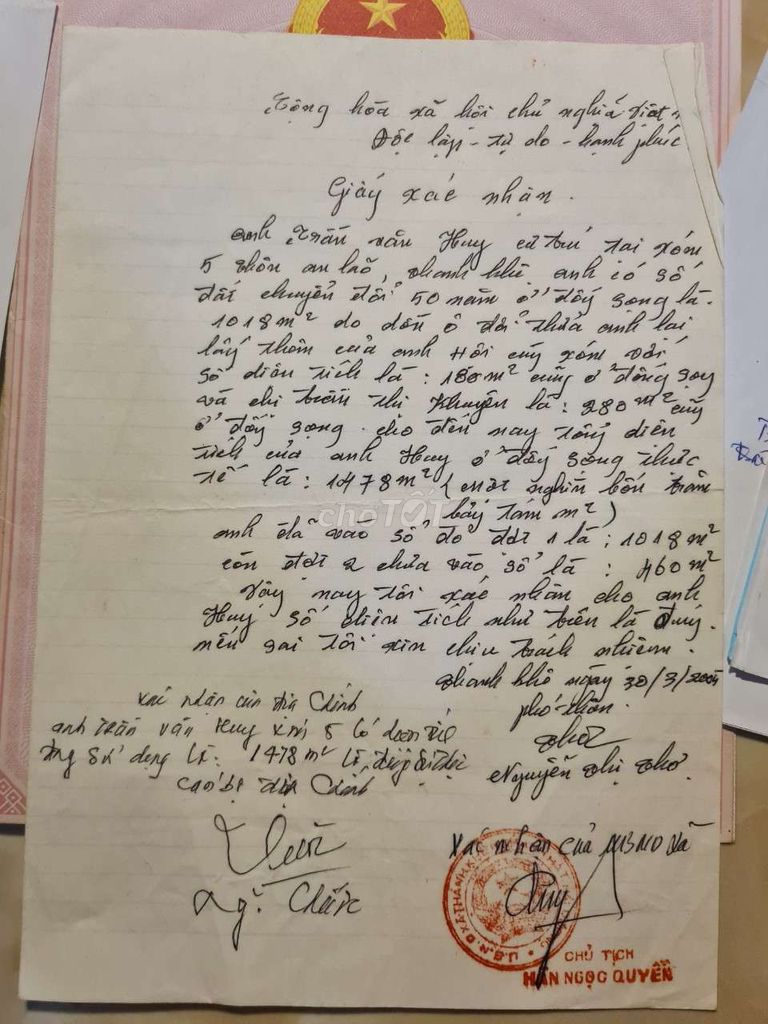 Cộng hòa xã hội chủ nghĩa Việt n
Độc lập - tự do - hạnh phúc
Giấy xác nhận.
anh Trần văn Huy cư trú tại xóm
5 thôn an lão, thanh khê anh có số
đất chuyển đổi 50 năm ở đống song là
1018m² do dồn ô đổi thửa anh lại
lấy thêm của anh Hôi cùng xóm với
số diện tích là: 180m² cũng ở đống song
và chị trần thị Khuyên là: 280m² cũng
ở đống song. cho đến nay tổng diện
tích của anh Huy ở đống song thực
tế là: 1478m² (một nghìn bốn trăm
bảy tám m²)
chợTỐT
anh đã vào sổ đỏ đợt 1 là: 1018m²
còn đợt 2 chưa vào sổ là: 460m²
Vậy nay tôi xác nhận cho anh
Huy số diện tích như trên là đúng.
nếu sai tôi xin chịu trách nhiệm.
thanh khê ngày 30/3/
xác nhận của địa Chính
phó thôn
anh trần văn Huy xóm 5 có diện tích
Thơ
sử dụng là: 1478m² là
Nguyễn thị Thơ
Cán bộ địa Chính
Xác nhận của UBND Xã
U.B.N.D XÃ THANH
CHỦ TỊCH
HÀN NGỌC QUYỀN